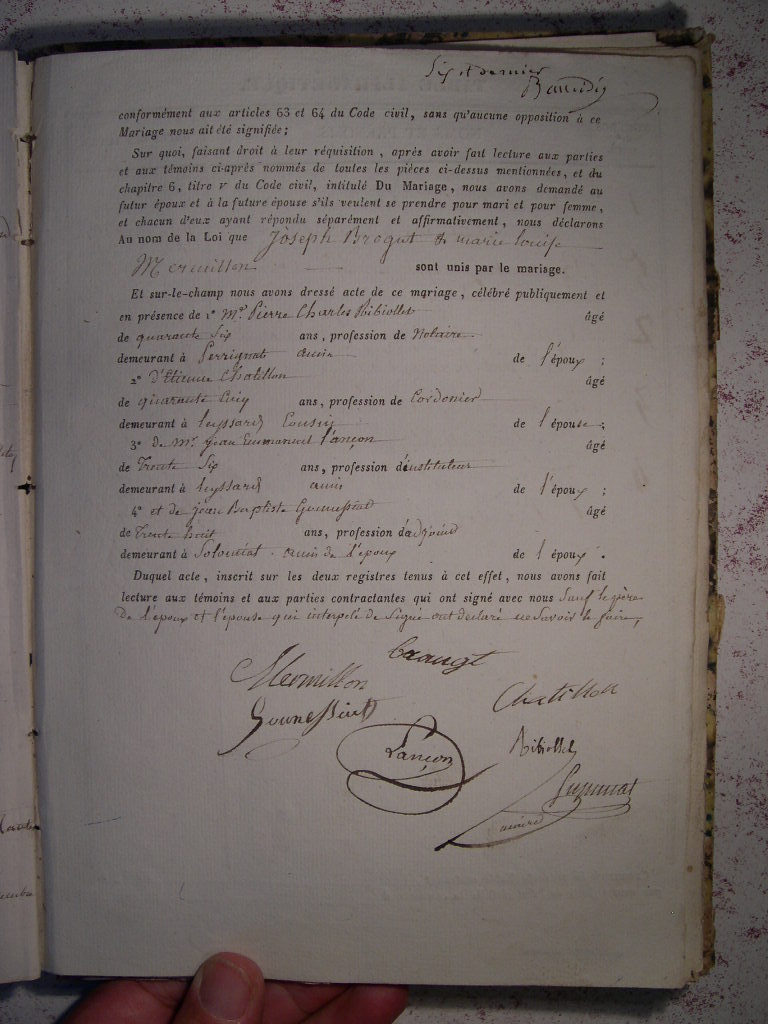 Six et dernier
conformément aux articles 63 et 64 du Code civil, sans qu'aucune opposition à ce
Mariage nous ait été signifiée;
Sur quoi, faisant droit à leur réquisition, après avoir fait lecture aux parties
et aux témoins ci-après nommés de toutes les pièces ci-dessus mentionnées, et du
chapitre 6, titre V du Code civil, intitulé Du Mariage, nous avons demandé au
futur époux et à la future épouse s'ils veulent se prendre pour mari et pour femme,
et chacun d'eux ayant répondu séparément et affirmativement, nous déclarons
Au nom de la Loi que Joseph Brogut & marie Louise
Mermillon sont unis par le mariage.
Et sur-le-champ nous avons dressé acte de ce mariage, célébré publiquement et
en présence de 1° Mr. Pierre Charles Ribiollet âgé
de quarante Six ans, profession de Notaire
demeurant à Serrignat amis de l'époux ;
2° d'Etienne Chatillon âgé
de quarante Cinq ans, profession de Cordonier
demeurant à Leyssard Cousin de l'épouse ;
3° de Mr. Jean Emmanuel Lançon âgé
de Trente Six ans, profession d'instituteur
demeurant à Leyssard amis de l'époux ;
4° et de Jean Baptiste âgé
de Trente huit ans, profession d'adjoint
demeurant à Solomiat amis de l'époux de l'époux .
Duquel acte, inscrit sur les deux registres tenus à cet effet, nous avons fait
lecture aux témoins et aux parties contractantes qui ont signé avec nous Sauf le père
De l'époux et l'épouse qui interpelé de Signé ont déclaré ne Savoir le faire,
Mermillon
Chatillon
Lançon
Ribiollet